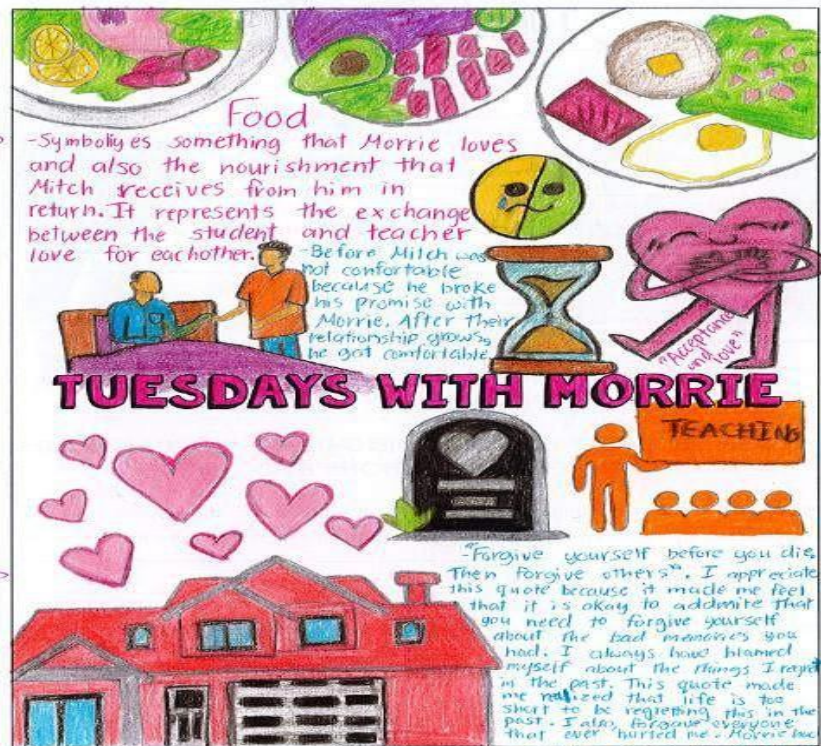 Food
-Symboliyes something that Morrie loves
and also the nourishment that
Mitch receives from him in
return. It represents the exchange
between the student and teacher
love for eachother.
-Before Mitch was
not confortable
because he broke
his promise with
Morrie. After their
relationship grows,
he got comfortable.
"Acceptance
and love"
TUESDAYS WITH MORRIE
TEACHING
-"Forgive yourself before you die.
Then forgive others". I appreciate
this quote because it made me feel
that it is okay to addmite that
you need to forgive yourself
about the bad memories you
had. I always have blamed
myself about the things I regret
in the past. This quote made
me realized that life is too
short to be regreting this in the
past. I also forgave everyone
that ever hurted me. Morrie